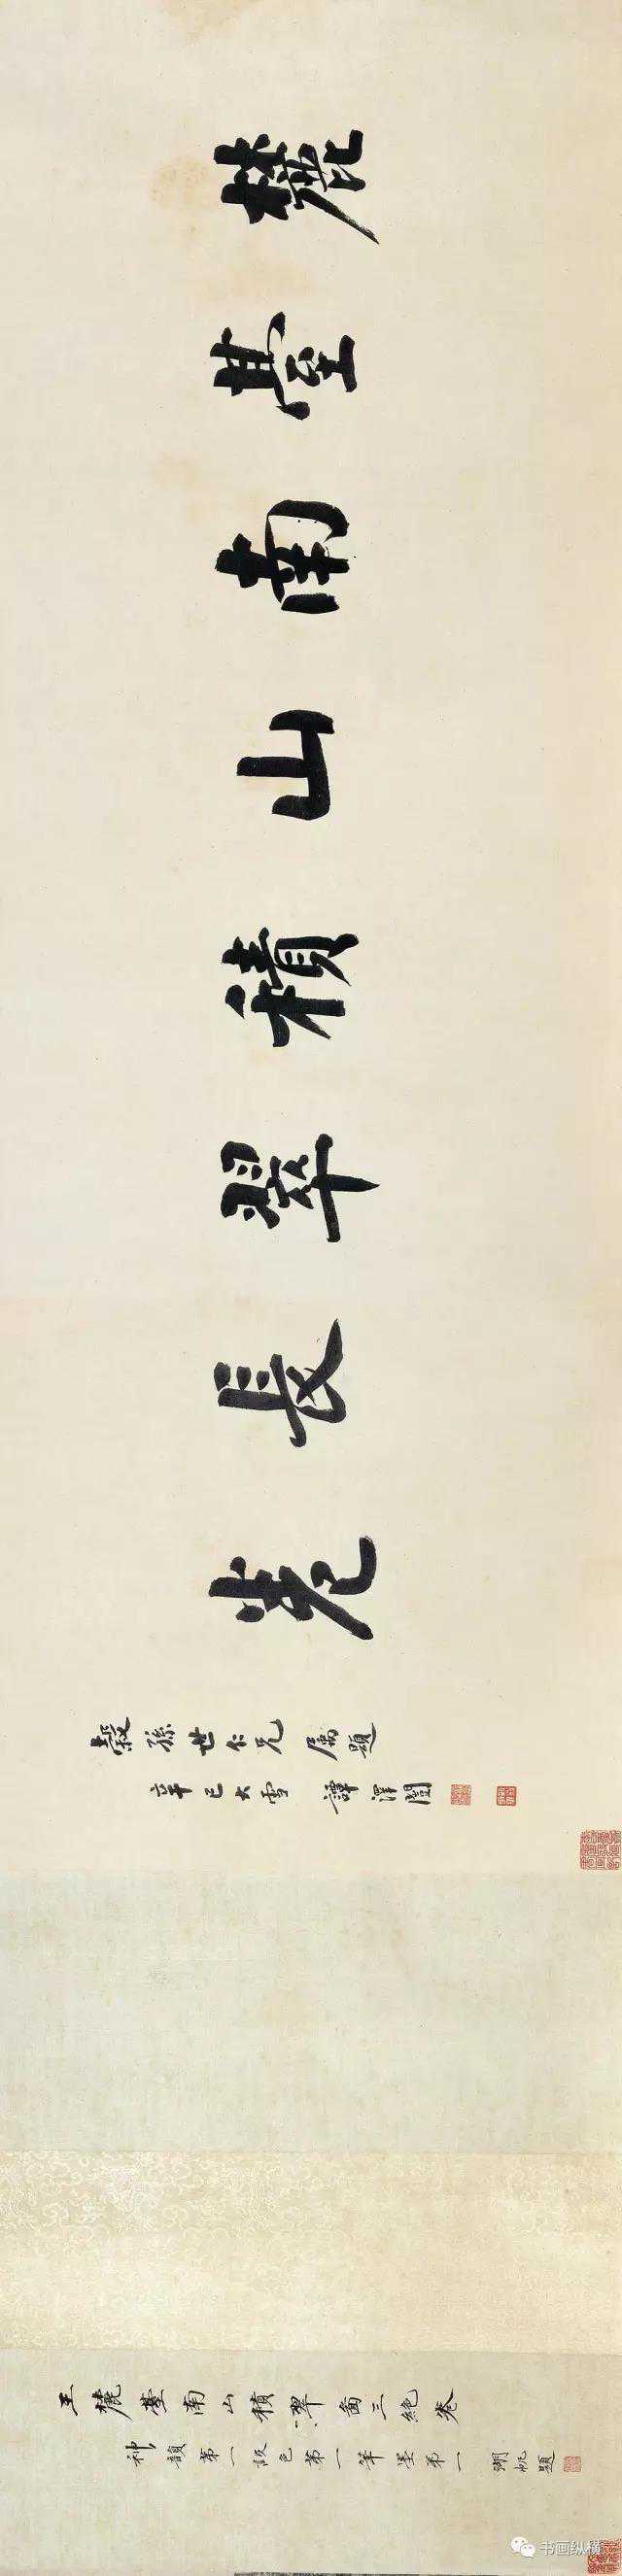 麓臺南山積翠長卷
穀孫世仁兄屬題
辛巳大雪 譚澤闓
王麓臺南山積翠圖三絕卷
神韻第一設色第一筆墨第一 湖帆題
书画纵横